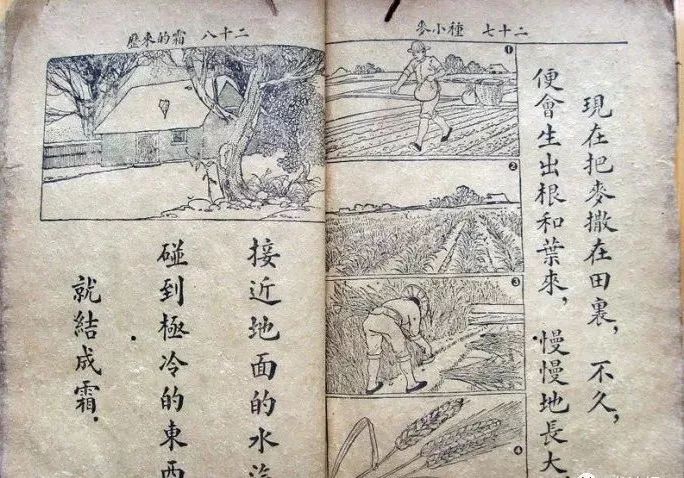 二十七 種小麥
現在把麥撒在田裏，不久，
便會生出根和葉來，慢慢地長大
1
2
3
4
二十八 霜的來歷
接近地面的水
碰到極冷的東西
就結成霜.